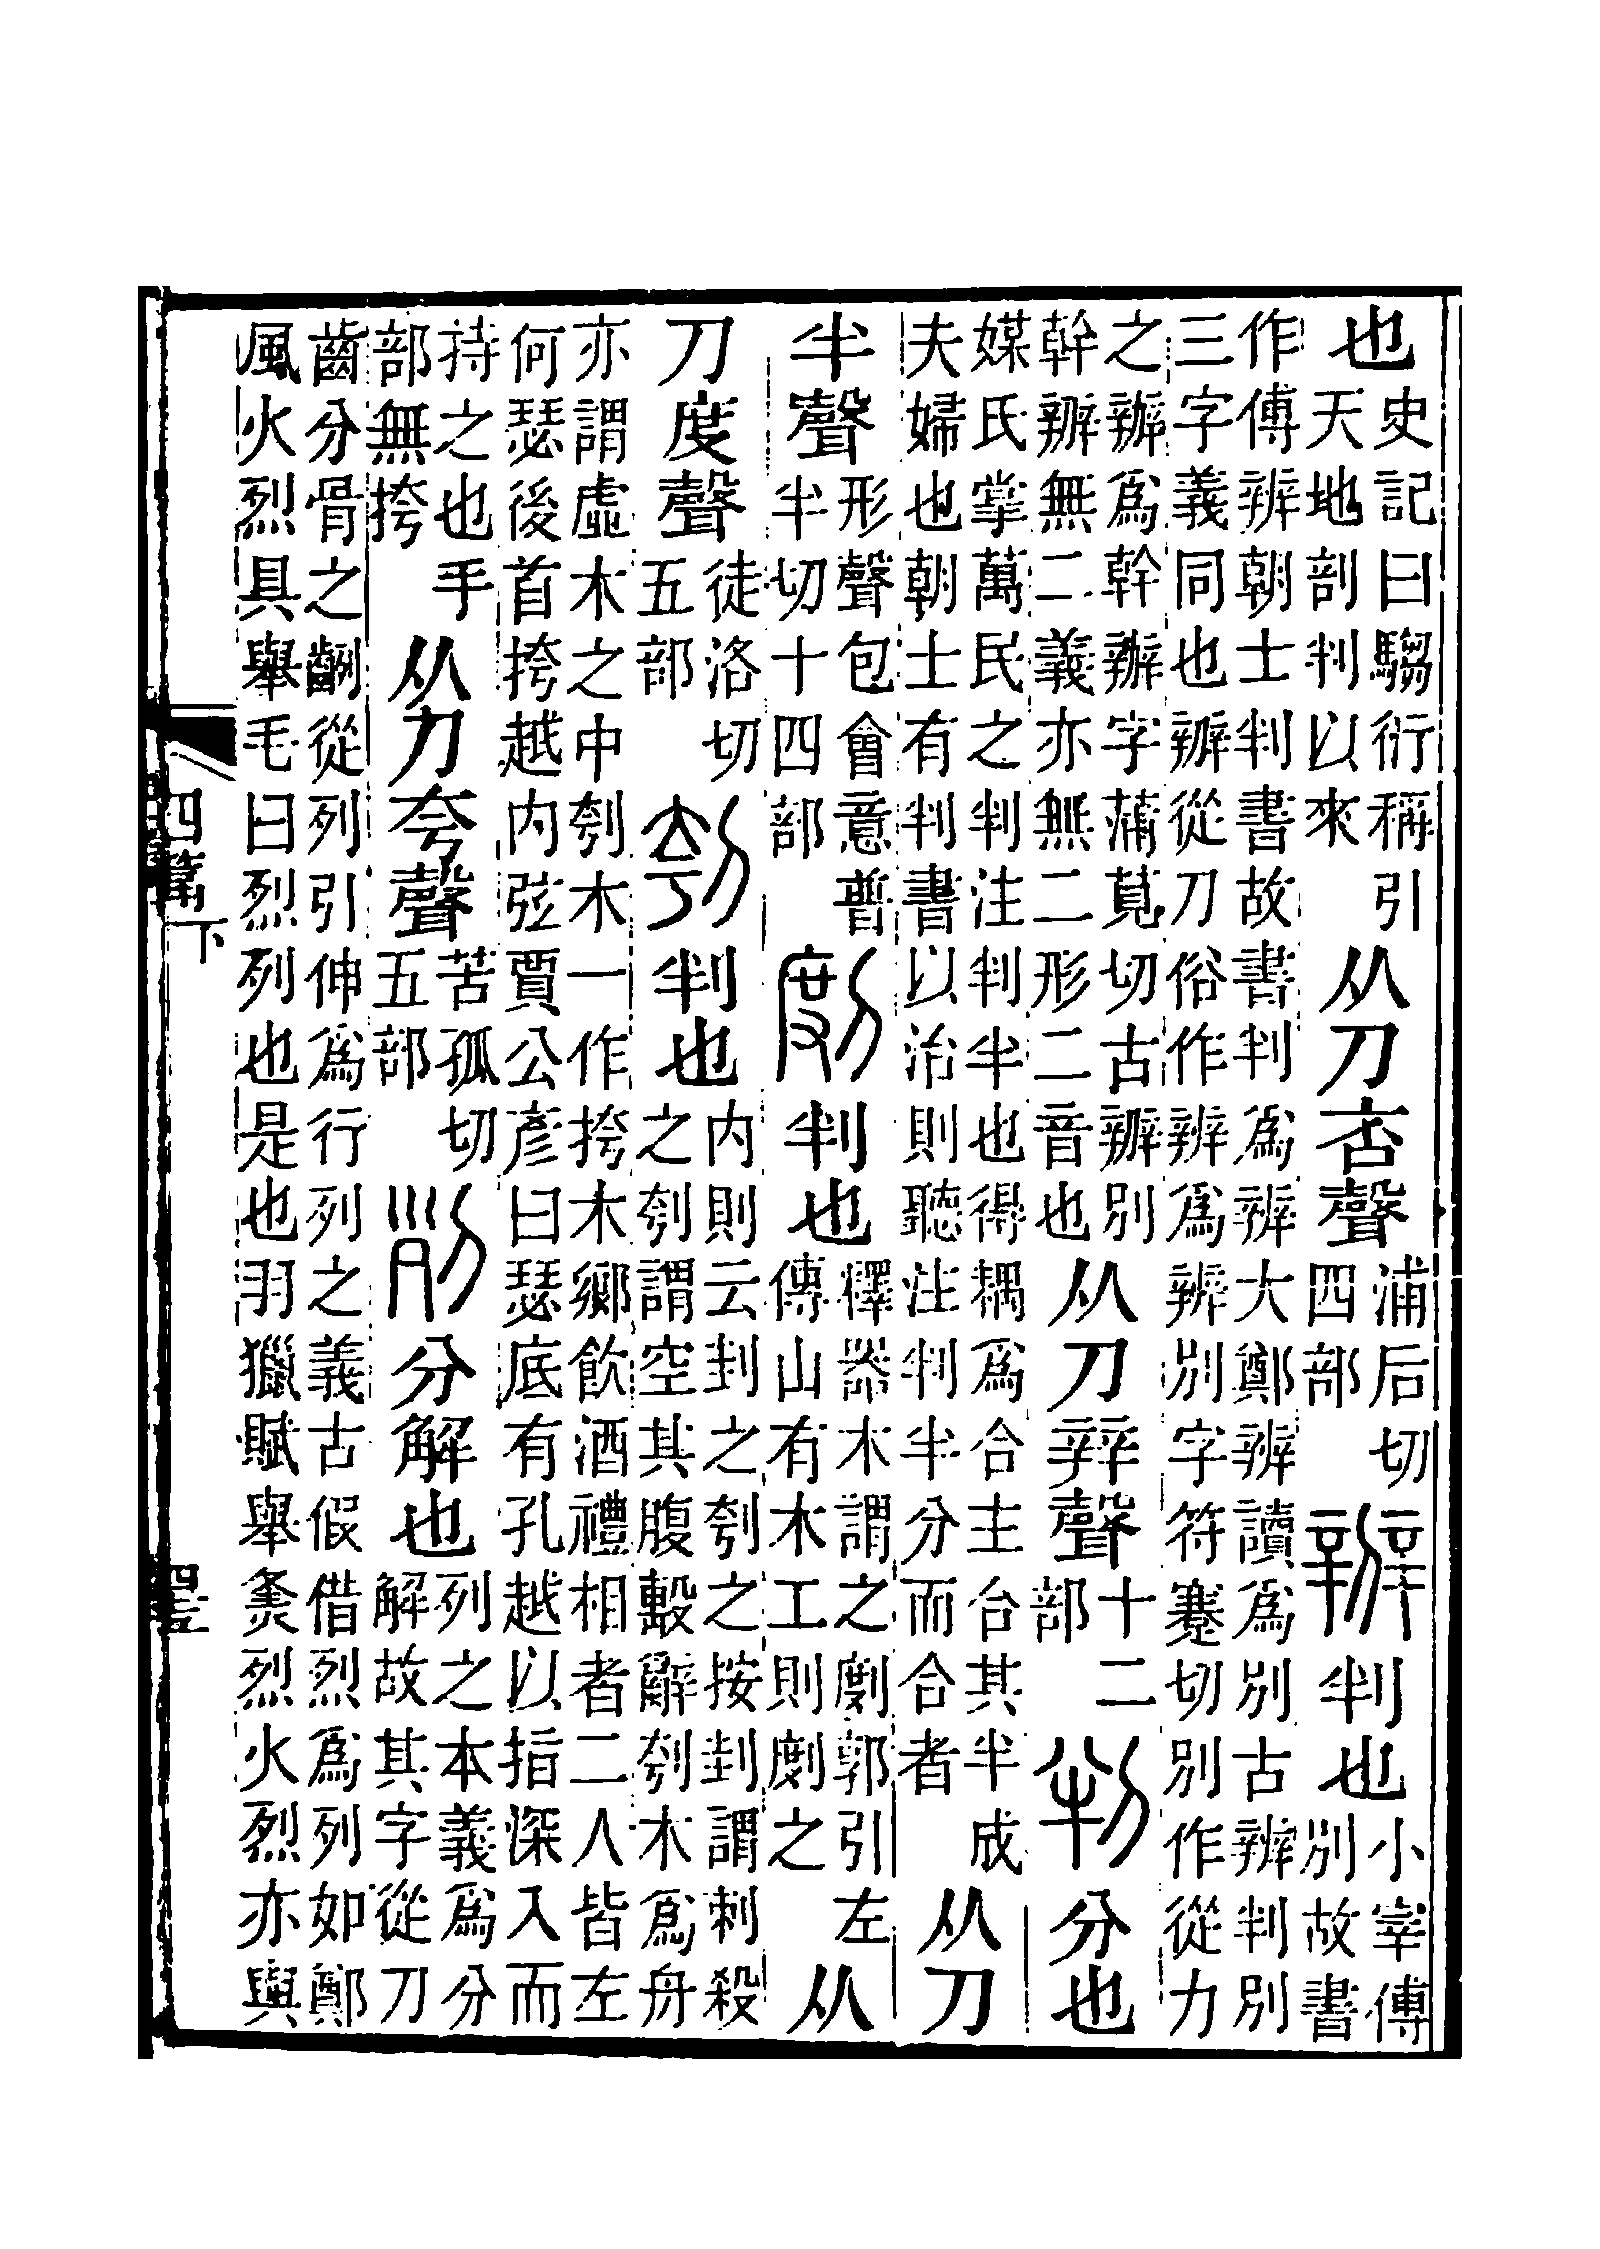 也史記曰騶衍稱引
天地剖判以來从刀咅聲浦后切
四部辧判也小宰傅
別故書
作傅辨朝士判書故書判爲辨大鄭辨讀爲別古辨判別
三字義同也辧從刀俗作辨爲辨別字符蹇切別作從力
之辦爲幹辦字蒲莧切古辧別
幹辦無二義亦無二形二音也从刀辡聲十二
部判分也
媒氏掌萬民之判注判半也得耦爲合主台其半成
夫婦也朝士有判書以治則聽注判半分而合者从刀
半聲形聲包會意普
半切十四部剫判也釋器木謂之剫郭引左
傳山有木工則剫之从
刀度聲徒洛切
五部刳判也內則云刲之刳之按刲謂刺殺
之刳謂空其腹毄辭刳木爲舟
亦謂虛木之中刳木一作挎木鄉飲酒禮相者二人皆左
何瑟後首挎越內弦賈公彥曰瑟底有孔越以指深入而
持之也手
部無挎从刀夸聲苦孤切
五部列分解也列之本義爲分
解故其字從刀
齒分骨之𪙏從列引伸爲行列之義古假借烈爲列如鄭
風火烈具舉毛曰烈列也是也羽獵賦舉㷋烈火烈亦與
四篇下